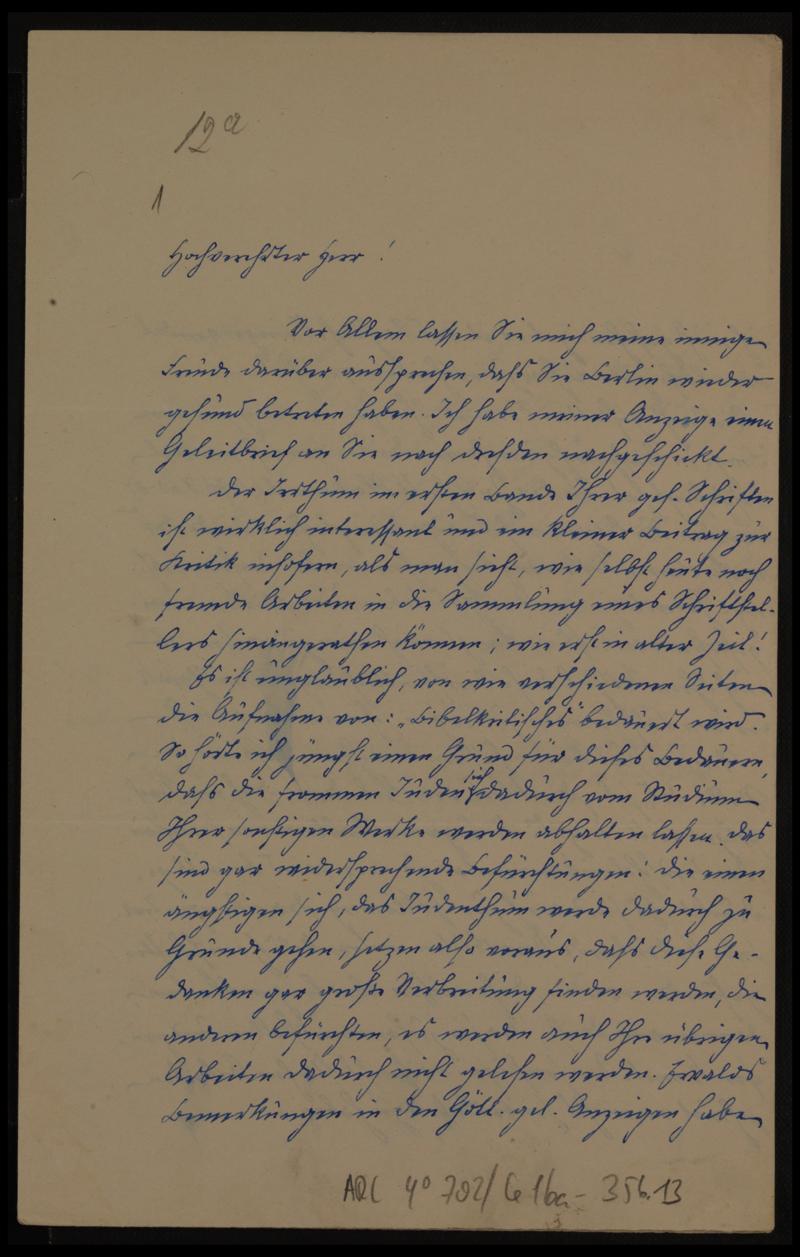 12a
1
Hochverehrter Herr!
Vor Allem lassen Sie mich meine innige
Freude darüber aussprechen, dass Sie Berlin wieder
gesund betreten haben. Ich habe meiner Anzeige einen
Geleitbrief an Sie nach Dresden nachgeschickt.
Der Irrthum im ersten Bande Ihrer ges. Schriften
ist wirklich interessant und ein kleiner Beitrag zur
Kritik insofern, als man sieht, wie selbst heute noch
fremde Arbeiten in die Sammlung eines Schriftstel-
lers hineingerathen können; wie erst in alter Zeit!
Es ist unglaublich, von wie verschiedenen Seiten
die Aufnahme von: „Bibelkritisches" bedauert wird.
So hörte ich jüngst einen Grund für dieses Bedauern,
dass die frommen Juden sich dadurch vom Studium
Ihrer sonstigen Werke werden abhalten lassen. Das
sind gar widersprechende Befürchtungen: die einen
ängstigen sich, das Judenthum werde dadurch zu
Grunde gehen, setzen also voraus, dass diese Ge-
danken gar große Verbreitung finden werden, die
anderen befürchten, es werden auch Ihre übrigen
Arbeiten dadurch nicht gelesen werden. Ewalds
Bemerkungen in den Gött. gel. Anzeigen habe
ARC 4° 792/G 16a - 356.13